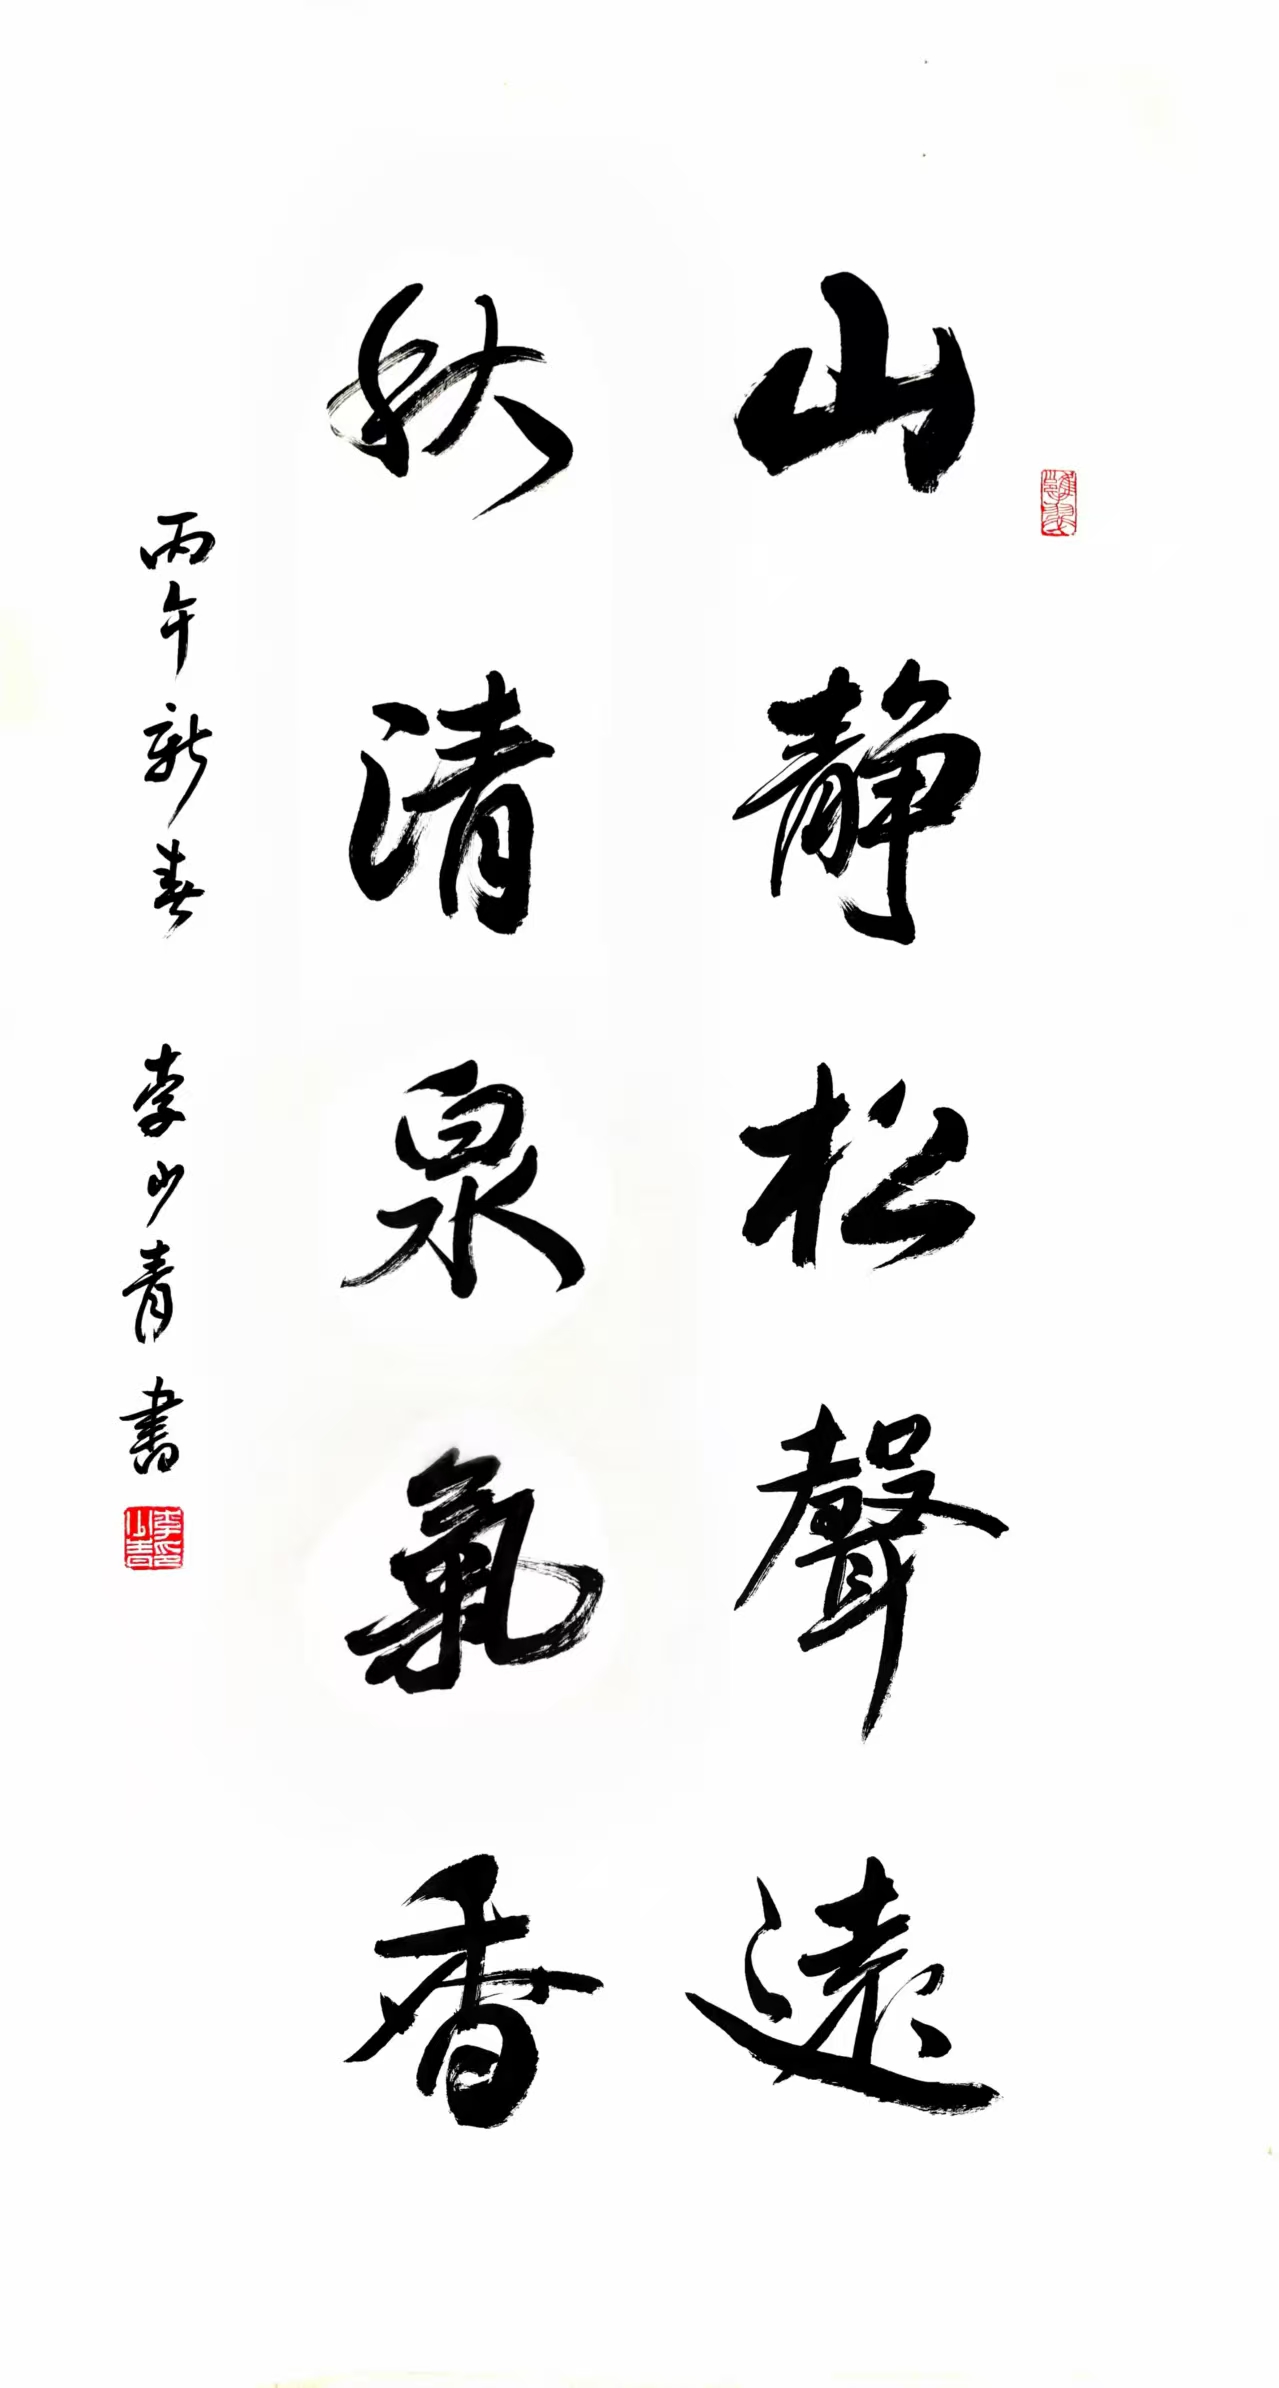 山靜松聲遠
秋清泉氣香
丙午新春 李少青書
李少青印